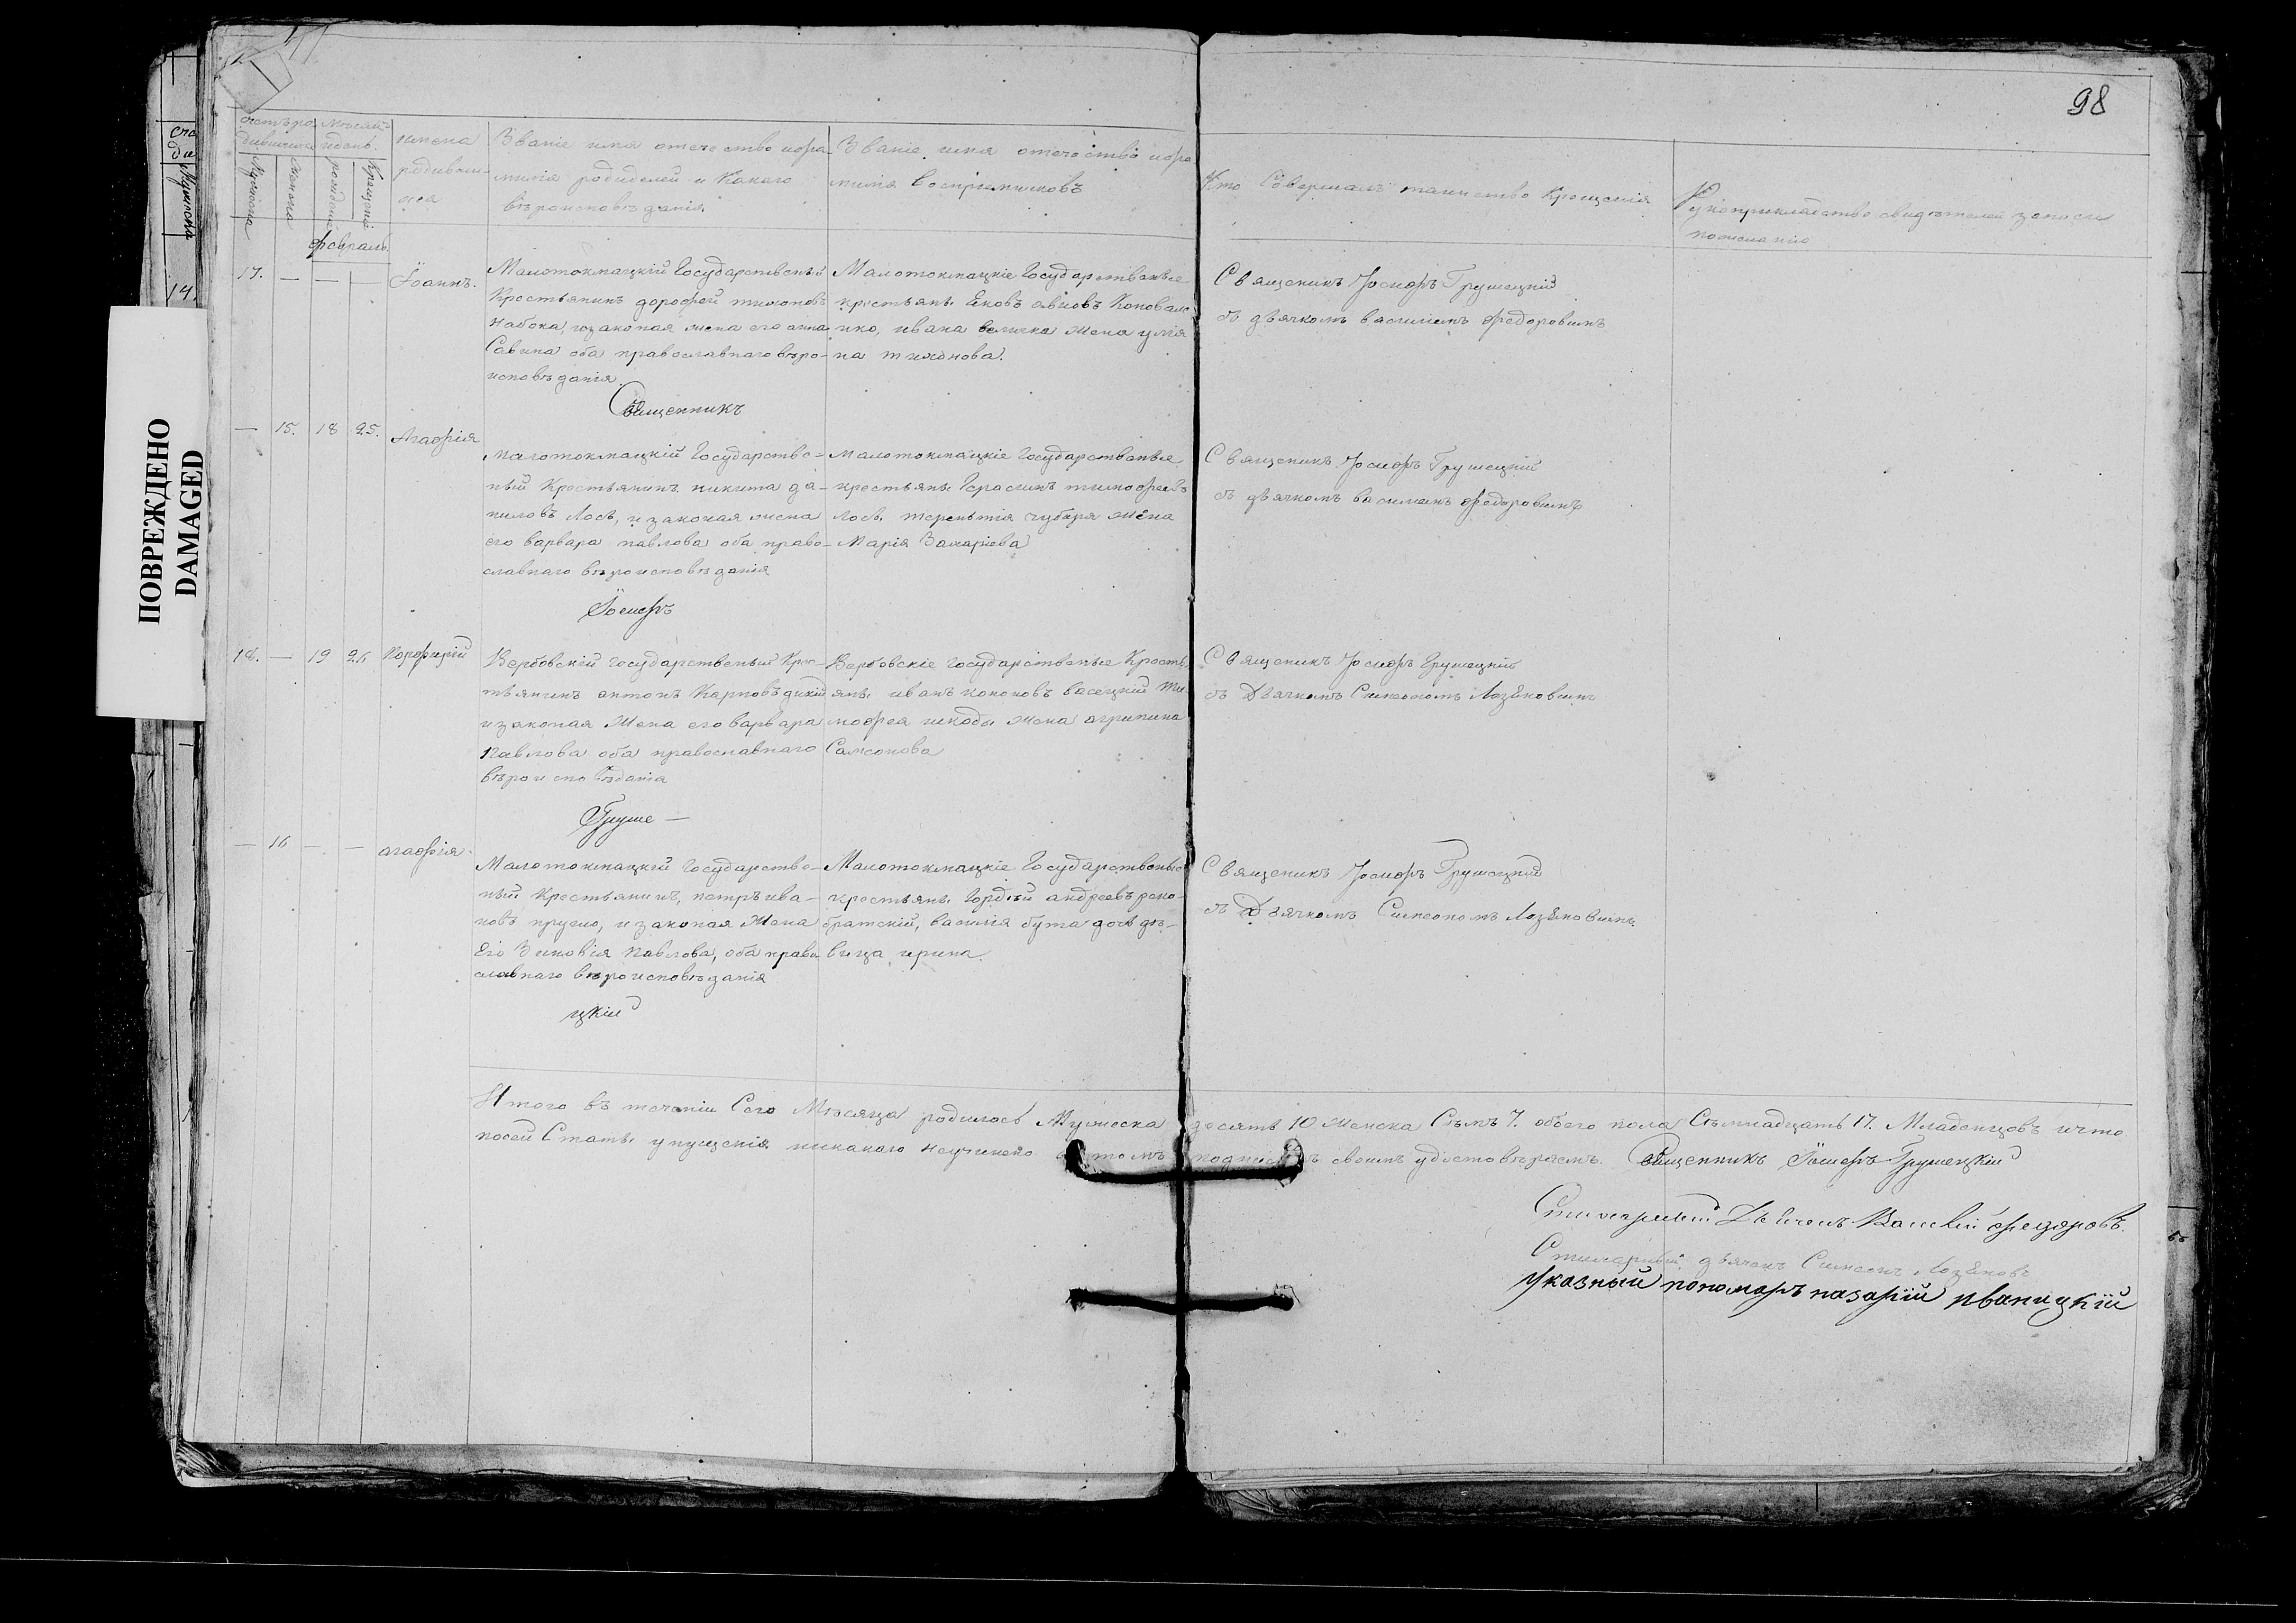 98
счетъ ро-
дившихся
Мѣсяцъ
и день.
Мужеска
Женска
рождения
Крещенія
имена
родивши-
хся
Званіе имя отечество и фа-
милія родителей и Какого
вѣроисповѣданія
Званіе имя отечество и фа-
милія воспріемниковъ
Кто Совершалъ таинство Крещенія
Рукоприкладство свидѣтелей записи
по желанію
февраль.
17. — — —
Іоаннъ.
Малотокмацкій Государственый
Крестьянинъ дорофей тихоновъ
набока, изаконая жена его анна
Савина оба православнаго вѣро-
исповѣданія
Малотокмацкіе Государственые
крестьяне Яковъ Коновал-
ко, ивана величка жена улія
на тихонова.
Священикъ Іосифъ Грушецкій
съ дьячкомъ василиемъ федоровымъ
Священникъ
— 15. 18 25.
Агафія
малотокмацкій Государстве-
ный Крестьянинъ никита да-
ниловъ Лось, и законая жена
его варвара павлова оба право-
славнаго вѣроисповѣданія
малотокмацкіе Государственые
крестьяне Герасимъ тимофеевъ
Лось, терентія чубаря жена
Марія Захаріева
Священикъ Іосифъ Грушецкій
съ дьячкомъ василиемъ федоровымъ
Іосифъ
18. — 19 26
Порфирій
Вербовскій государственый Крес-
тьянинъ антонъ Карповъ дикій
и законая Жена его варвара
Павлова оба православнаго
вѣроисповѣданія
Вербовскіе государственые Кресть
яне иванъ кононовъ васецкий ти
мофея шкоды жена агрипина
Самсонова
Священикъ Іосифъ Грушецкій
съ Дьячкомъ Симеономъ Лозяновимъ
Груше —
— 16 — —
агафія
Малотокмацкій Государстве-
ный Крестьянинъ, петръ ива-
новъ прусло, и законая Жена
Его Зиновія Павлова, оба право
славнаго вѣроисповѣданія
Малотокмацкіе Государственые
крестьяне Гордѣй андреевъ
братскій, василія бута дочь дѣ-
вица ирина
Священикъ Іосифъ Грушецкій
съ Дьячкомъ Симеономъ Лозяновимъ
цкій
Итого въ теченіи Сего Мѣсяца родилось Мужеска десять 10 Женска Сѣмъ 7. обоего пола Сѣмнадцать 17. Младенцовъ и что
посей Статьи упущенія никакого неучинено в томъ подписомъ своимъ удостовѣряемъ. Священникъ Іосифъ Грушецкій
Стихарный Дьячокъ Василій федоровъ.
Стихарный дьячекъ Симеонъ Лозяновъ
Указный пономарь назарій иваницкій
ПОВРЕЖДЕНО
DAMAGED